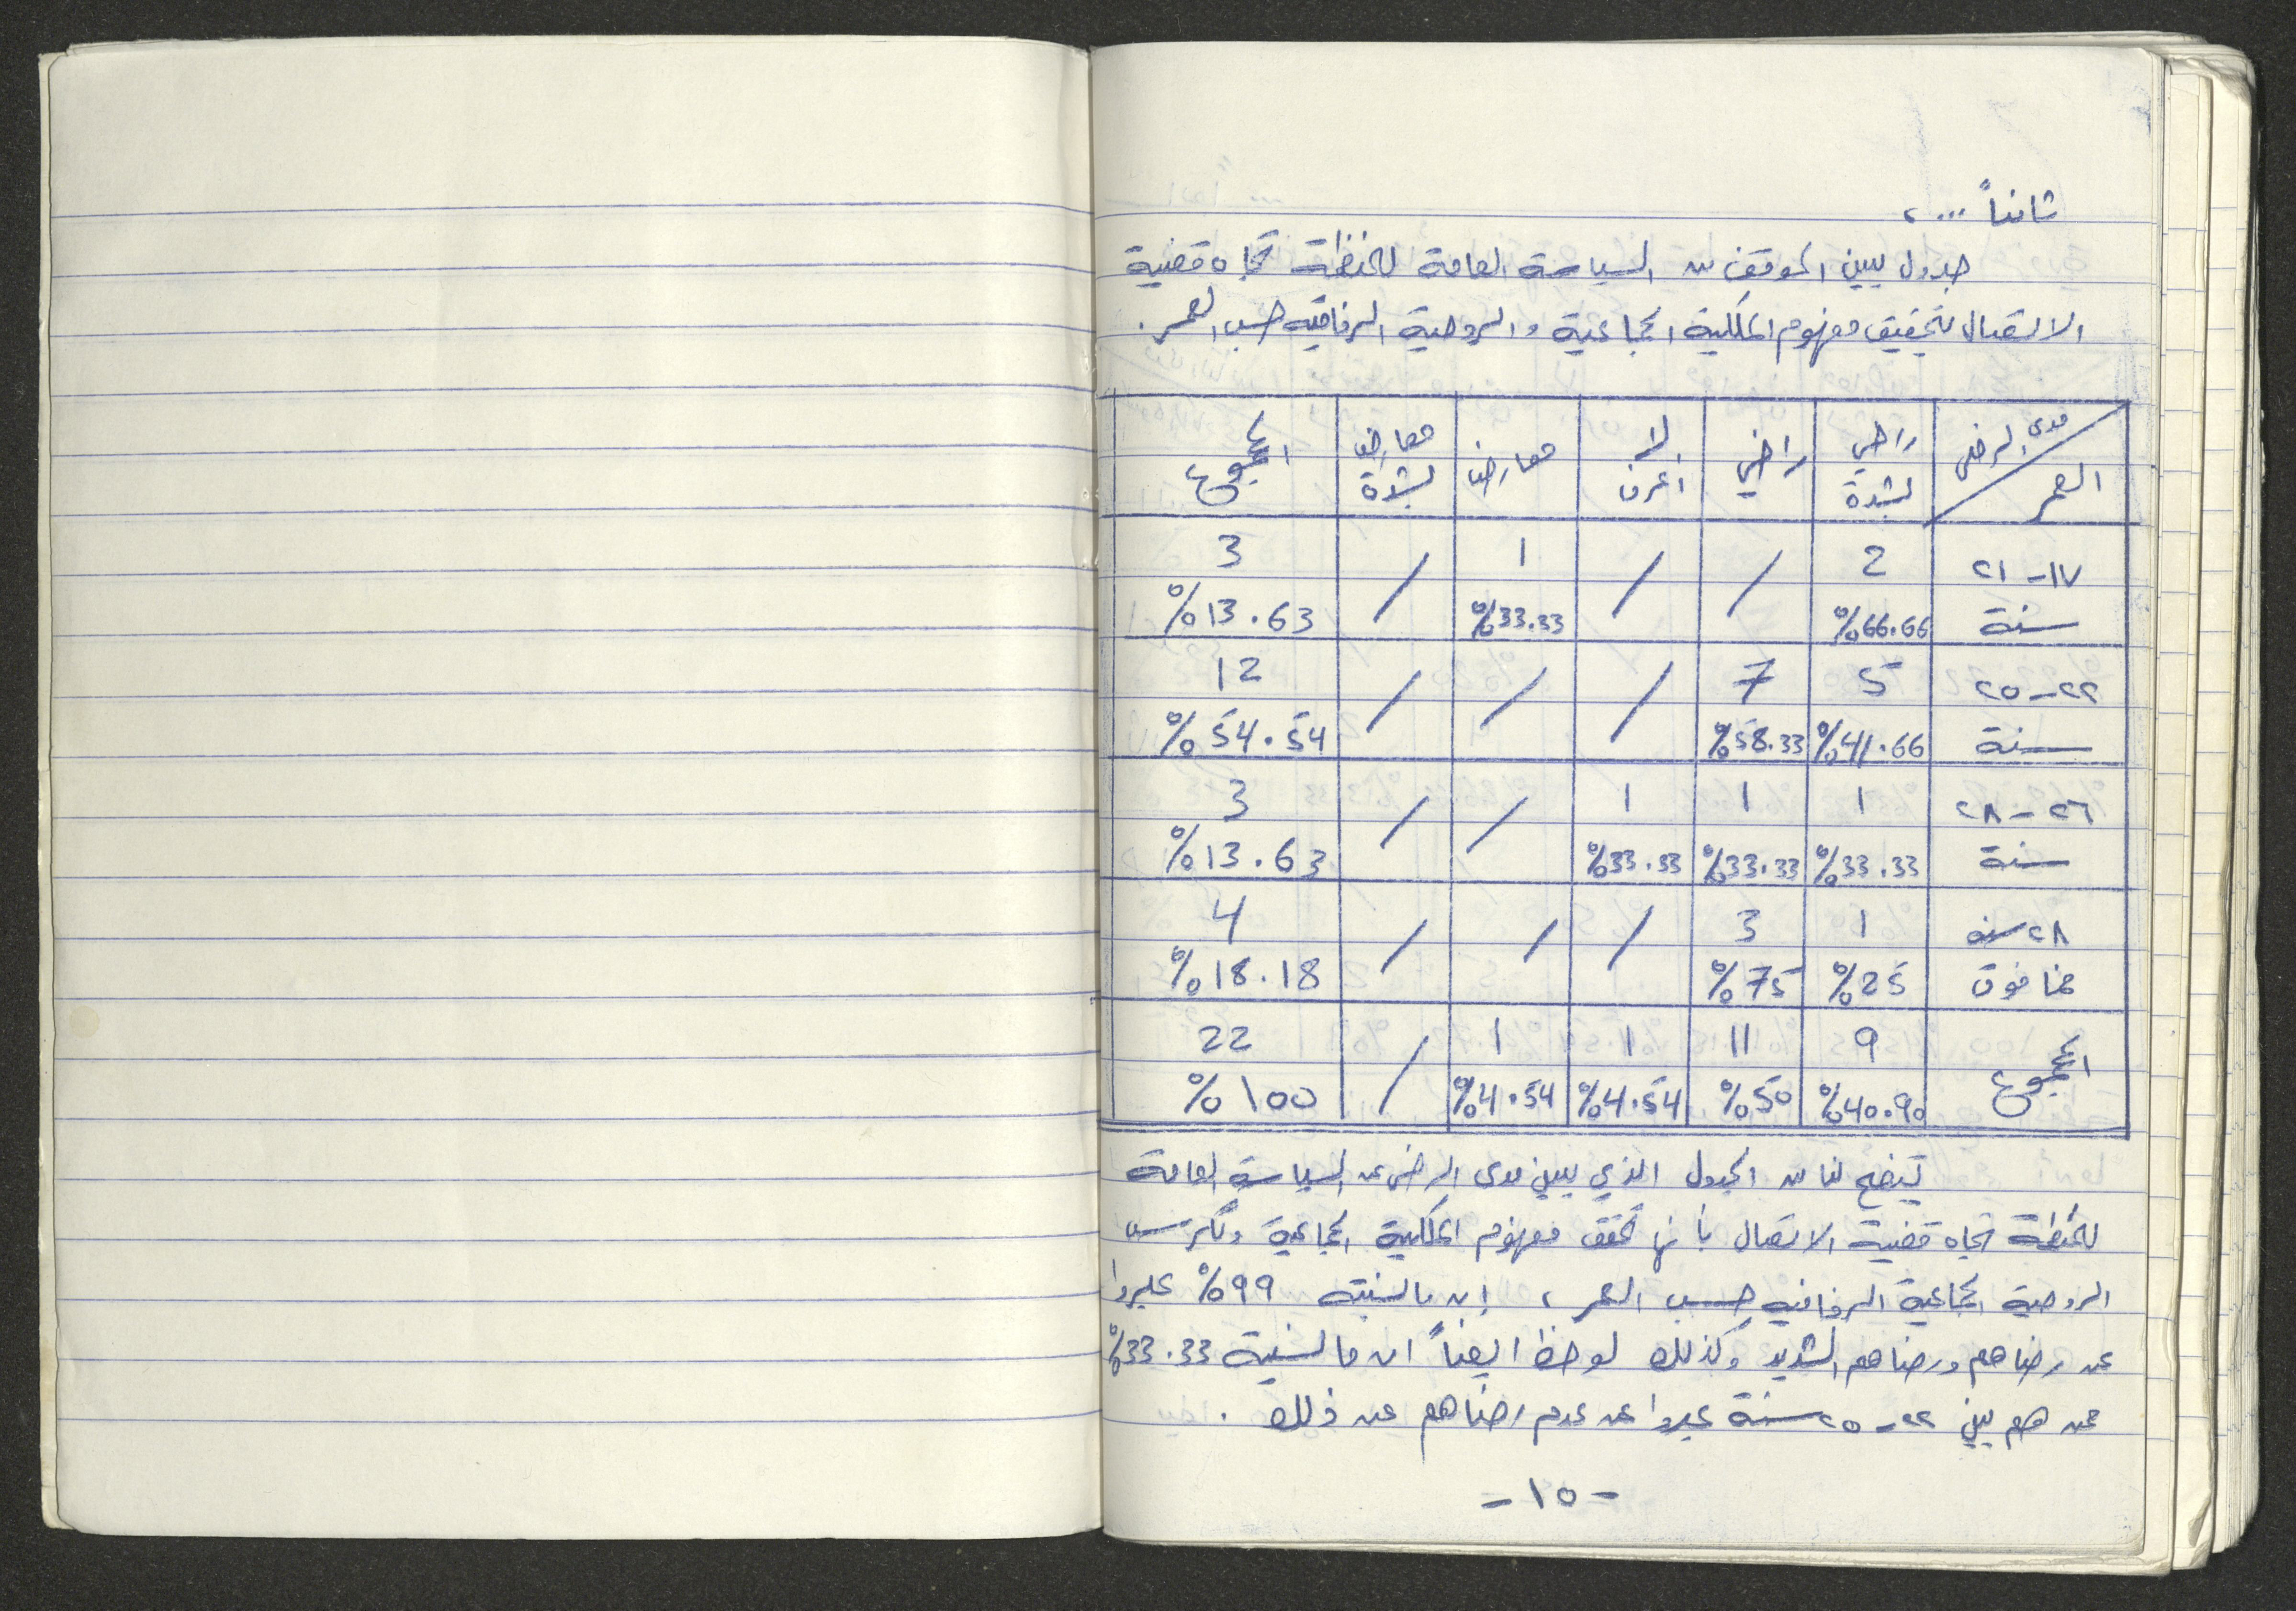 ثانياً ... ،
جدول يبين الموقف من السياسة العامة للمنظمة تجاه قضية
الاتصال لتحقيق مفهوم الملكية الجماعية والروحية الرفاقية حسب العمر .
مدى الرضى / العمر | راضي بشدة | راضي | لا اعرف | معارض | معارض بشدة | المجموع
١٧-٢١ سنة | 2 %66.66 | / | / | 1 %33.33 | / | 3 %13.63
٢٢-٢٥ سنة | 5 %41.66 | 7 %58.33 | / | / | / | 12 %54.54
٢٦-٢٨ سنة | 1 %33.33 | 1 %33.33 | 1 %33.33 | / | / | 3 %13.63
٢٨ سنة فما فوق | 1 %25 | 3 %75 | / | / | / | 4 %18.18
المجموع | 9 %40.90 | 11 %50 | 1 %4.54 | 1 %4.54 | / | 22 %100
يتضح لنا من الجدول الذي يبين مدى الرضى عن السياسة العامة
للمنظمة تجاه قضية الاتصال بأنها تحقق مفهوم الملكية الجماعية وتكرس
الروحية الجماعية الرفاقية حسب العمر ، إن ما نسبته 99% عبروا
عن رضاهم ورضاهم الشديد وكذلك لوحظ ايضاً ان ما نسبته 33.33%
ممن هم بين ٢٢-٢٥ سنة عبروا عن عدم رضاهم عن ذلك .
- ١٥ -